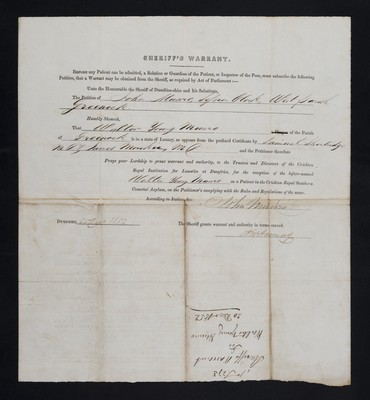 SHERIFF'S WARRANT.
BEFORE any Patient can be admitted, a Relation or Guardian of the Patient, or Inspector of the Poor, must subscribe the following
Petition, that a Warrant may be obtained from the Sheriff, as required by Act of Parliament:—
Unto the Honourable the Sheriff of Dumfries-shire and his Substitutes,
The Petition of John Munro
Greenock
Humbly Sheweth,
That Walter Young Munro of the Parish
of Greenock is in a state of Lunacy, as appears from the prefixed Certificate by Samuel
M.D. & James M.D. and the Petitioner therefore
Prays your Lordship to grant warrant and authority, to the Trustees and Directors of the Crichton
Royal Institution for Lunatics at Dumfries, for the reception of the before-named
Walter Young Munro, as a Patient in the Crichton Royal Southern
Counties Asylum, on the Petitioner's complying with the Rules and Regulations of the same.
According to Justice, &c. John Munro
DUMFRIES, The Sheriff grants warrant and authority in terms craved.
Sheriff's Warrant
for
Walter Young Munro